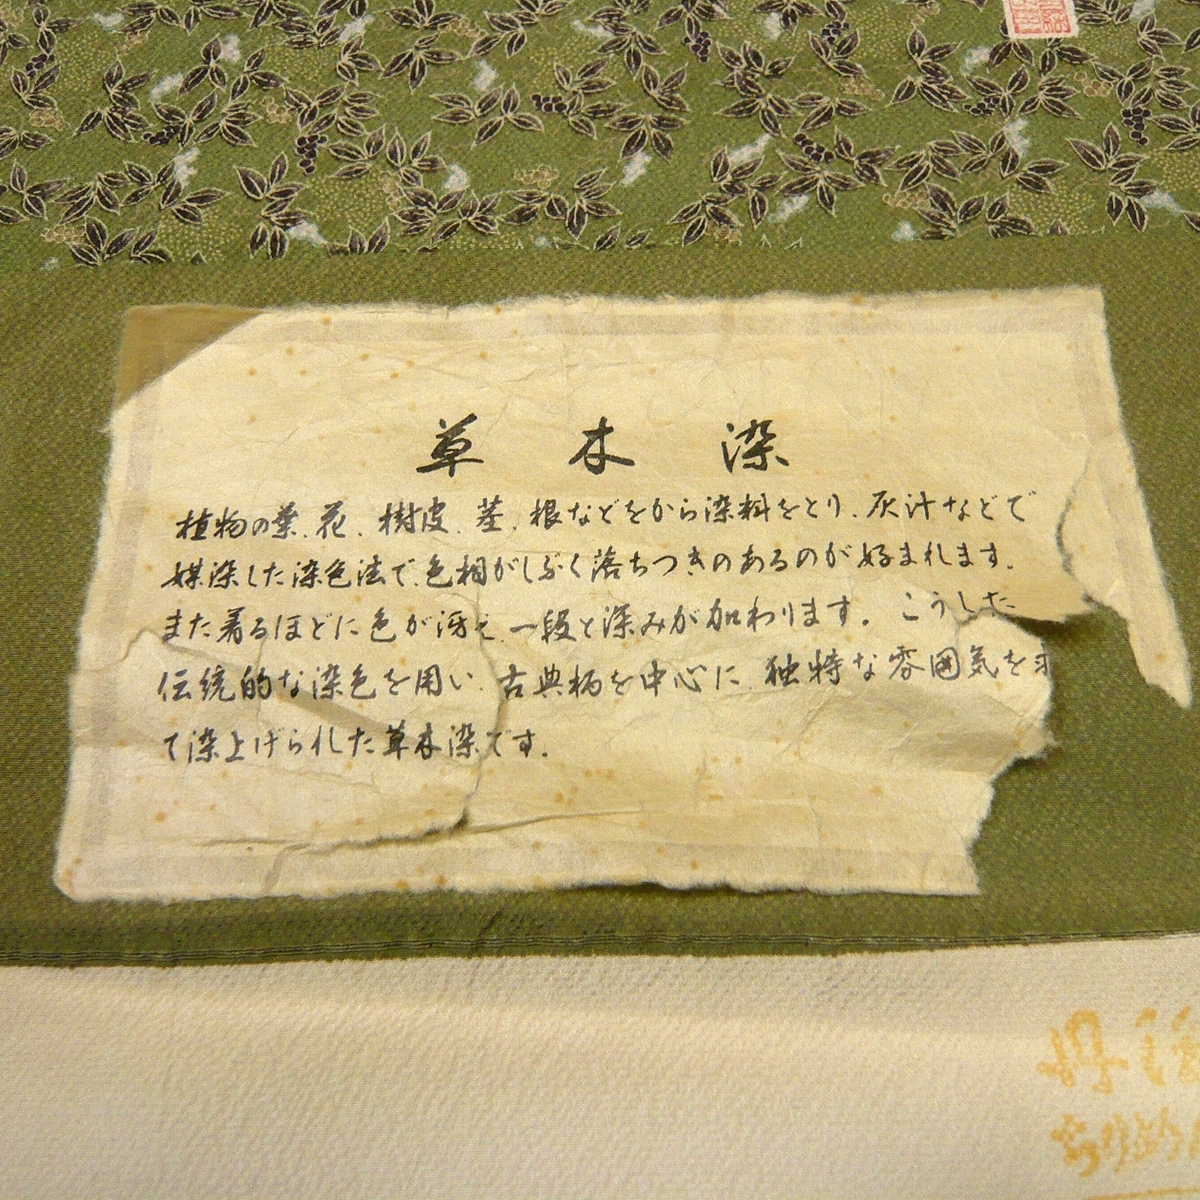 草木染
植物の葉、花、樹皮、茎、根などをから染料をとり、灰汁などで
媒染した染色法で、色相がしぶく落ちつきのあるのが好まれます。
また着るほどに色が冴え、一段と深みが加わります。こうした
伝統的な染色を用い、古典柄を中心に、独特な雰囲気を求
て染上げられた草木染です。
丹後
ちりめん